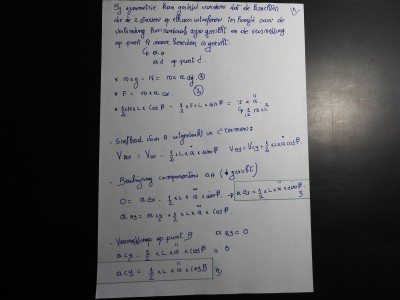 Bij symmetrie kan gesteld worden dat de krachten
die de 2 staven op elkaar uitoefenen ter hoogte van de
verbinding horizontaal zijn gericht en de versnelling
op punt A naar beneden is gericht.
↳ a_A
a_C op punt C.
* m×g - N = m×a_Cy. ①
* F = m×a_Cx ②
* 1/2 N×L×cosβ - 1/2×F×L×sinβ = I×α̈
↳ 1/12 m×L²
- Snelheid van A uitgedrukt in C termen:
V_Ax = V_Cx - 1/2×L×α̇×sinβ V_Ay = V_Cy + 1/2×L×α̇×cosβ
- Beschrijving componenten a_A
0 = a_Cx - 1/2×L×α̈×sinβ. → a_Cx = 1/2×L×α̈×sinβ. 3
a_Ay = a_Cy + 1/2×L×α̈×cosβ.
- Versnelling op punt B a_By = 0
a_Cy - 1/2×L×α̈×cosβ = 0
a_Cy = 1/2×L×α̈×cosβ